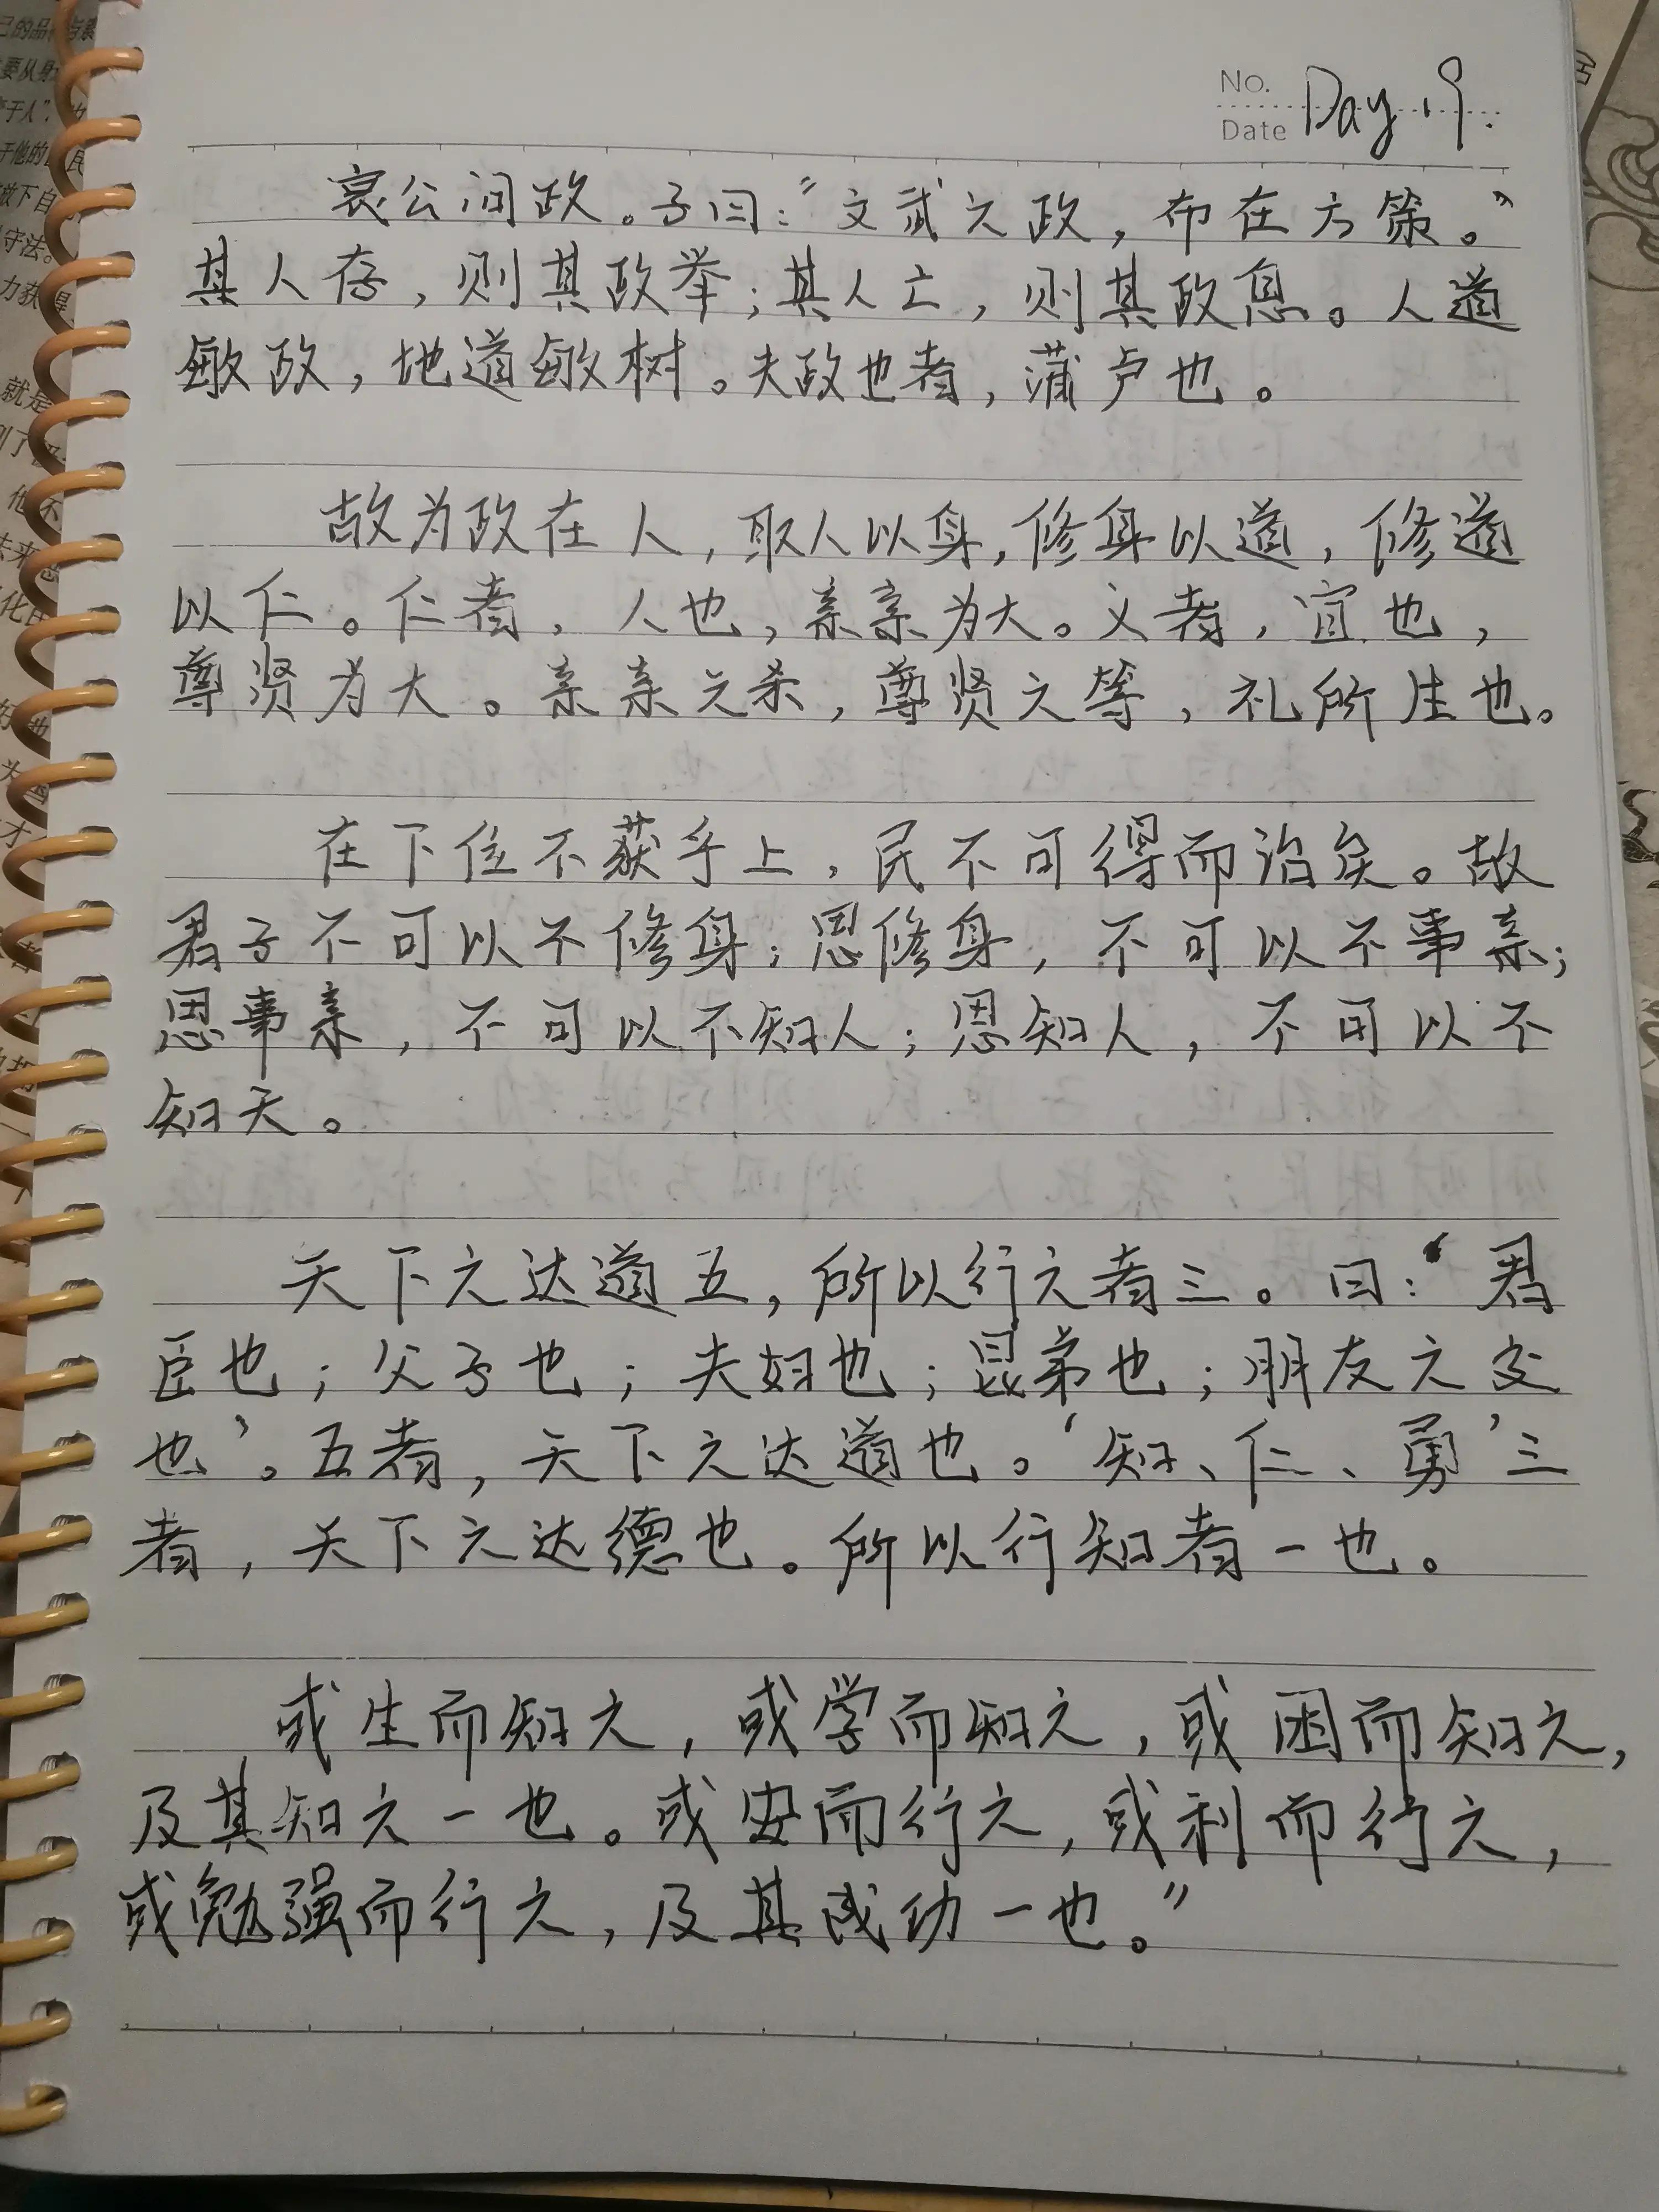 No.
Date Day 19.
哀公问政。子曰："文武之政，布在方策。"
其人存，则其政举；其人亡，则其政息。人道
敏政，地道敏树。夫政也者，蒲卢也。
故为政在人，取人以身，修身以道，修道
以仁。仁者，人也，亲亲为大。义者，宜也，
尊贤为大。亲亲之杀，尊贤之等，礼所生也。
在下位不获乎上，民不可得而治矣。故
君子不可以不修身；思修身，不可以不事亲；
思事亲，不可以不知人；思知人，不可以不
知天。
天下之达道五，所以行之者三。曰：‘君
臣也；父子也；夫妇也；昆弟也；朋友之交
也’。五者，天下之达道也。‘知、仁、勇’三
者，天下之达德也。所以行知者一也。
或生而知之，或学而知之，或困而知之，
及其知之一也。或安而行之，或利而行之，
或勉强而行之，及其成功一也。”